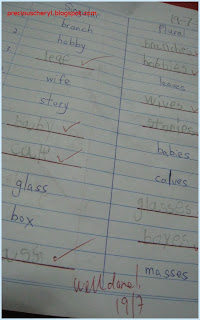 19-7
Plural
branch branches
hobby hobbies
leaf leaves
wife wives
story stories
baby babies
calf calves
glass glasses
box boxes
masses
well done!
19/7